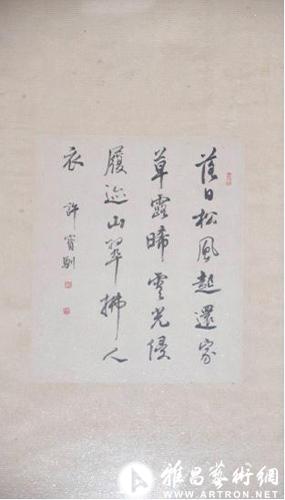 落日松風起還家
草露晞雲光侵
履迹山翠拂人
衣 許寶馴
雅昌藝術網
WWW.ARTRON.NET